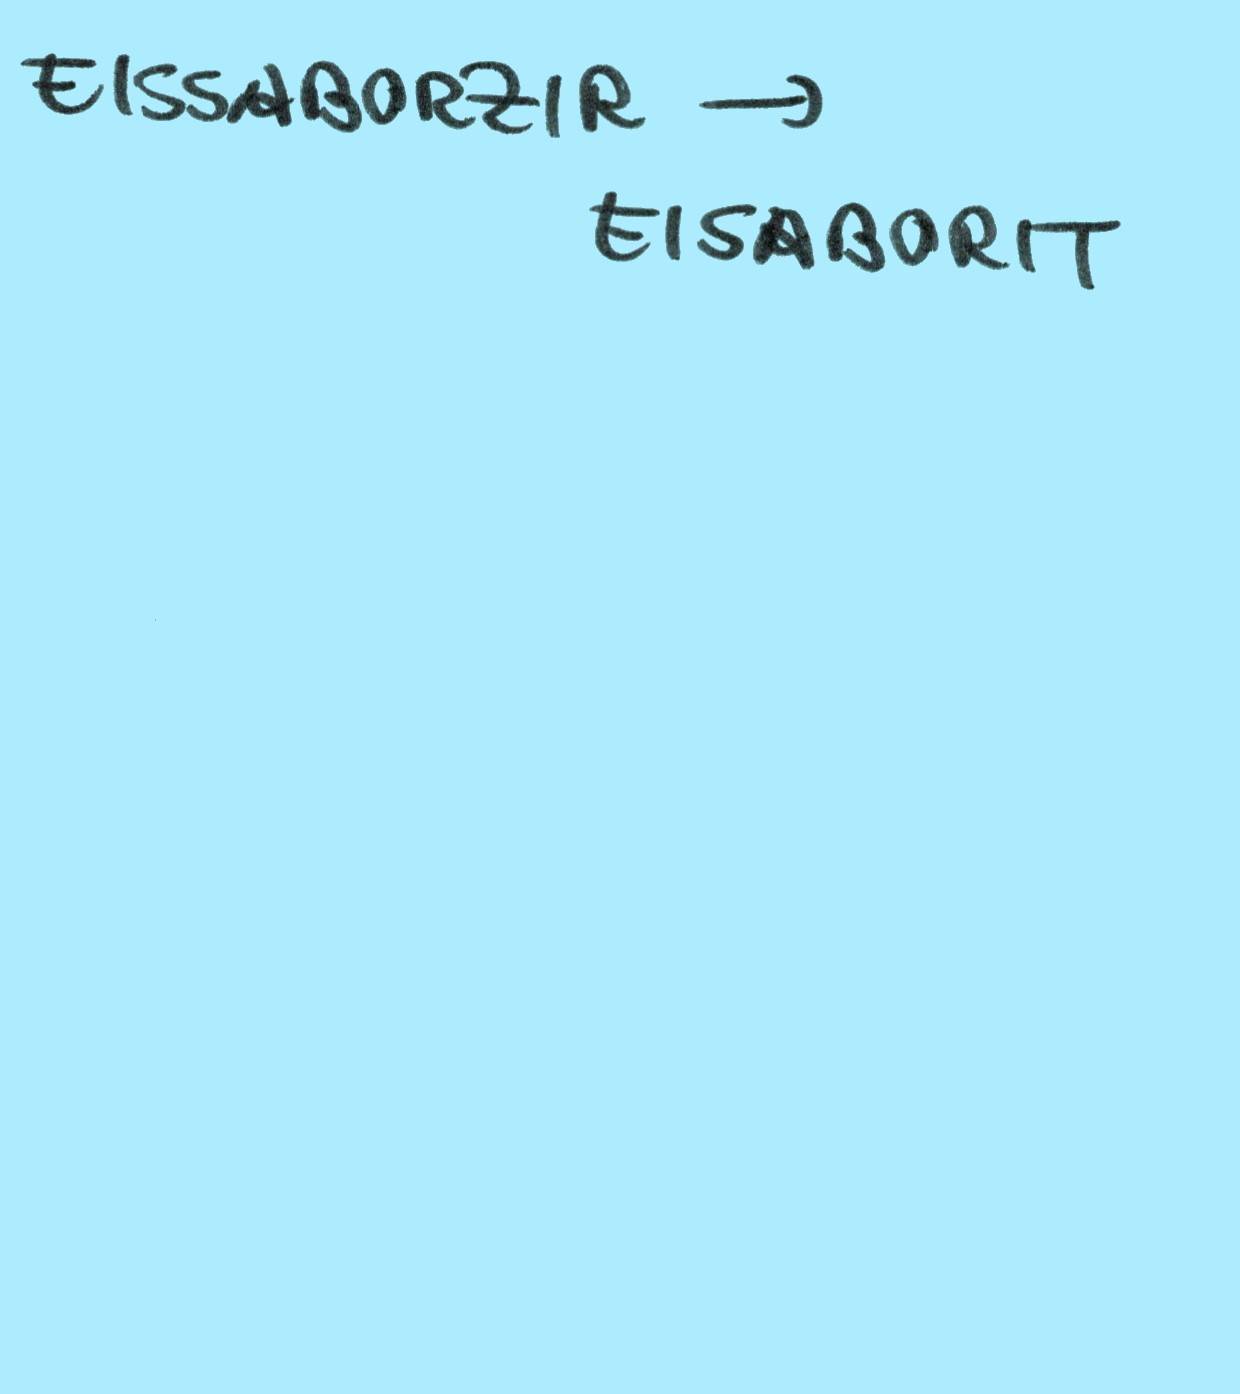 EISSABORZIR →
EISABORIT